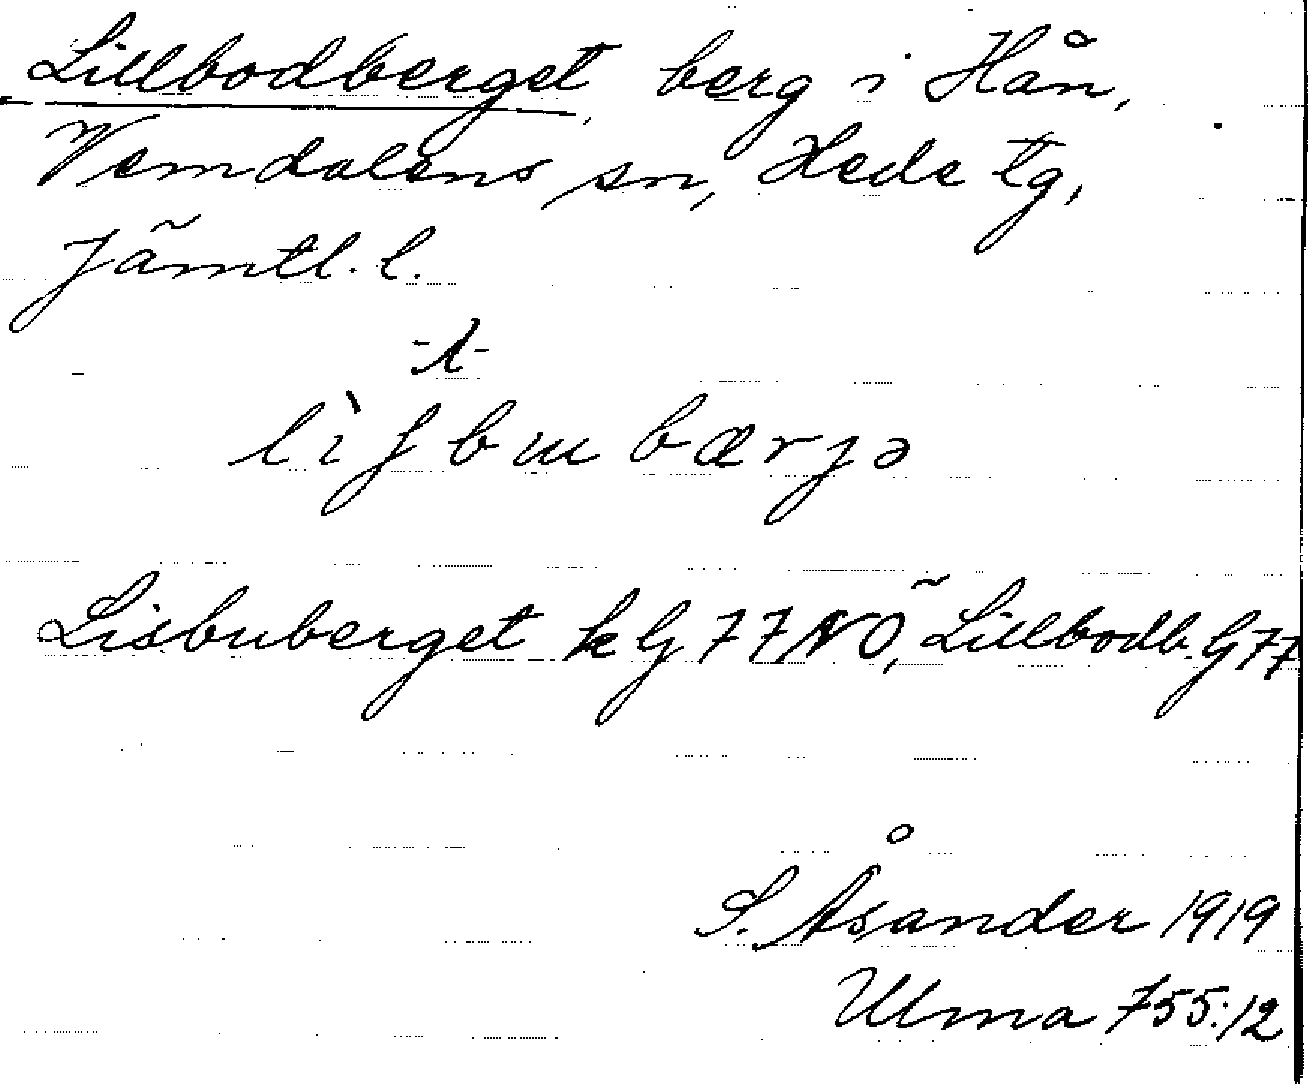 Lillbodberget, berg i Hån,
Vemdalens sn, Hede tg,
Jämtl. l.
-ʎ-
lìʃbɯbærjə
Lisbuberget k G 77 NO, Lillbodb. G 77
S. Åsander 1919
Ulma 755:12